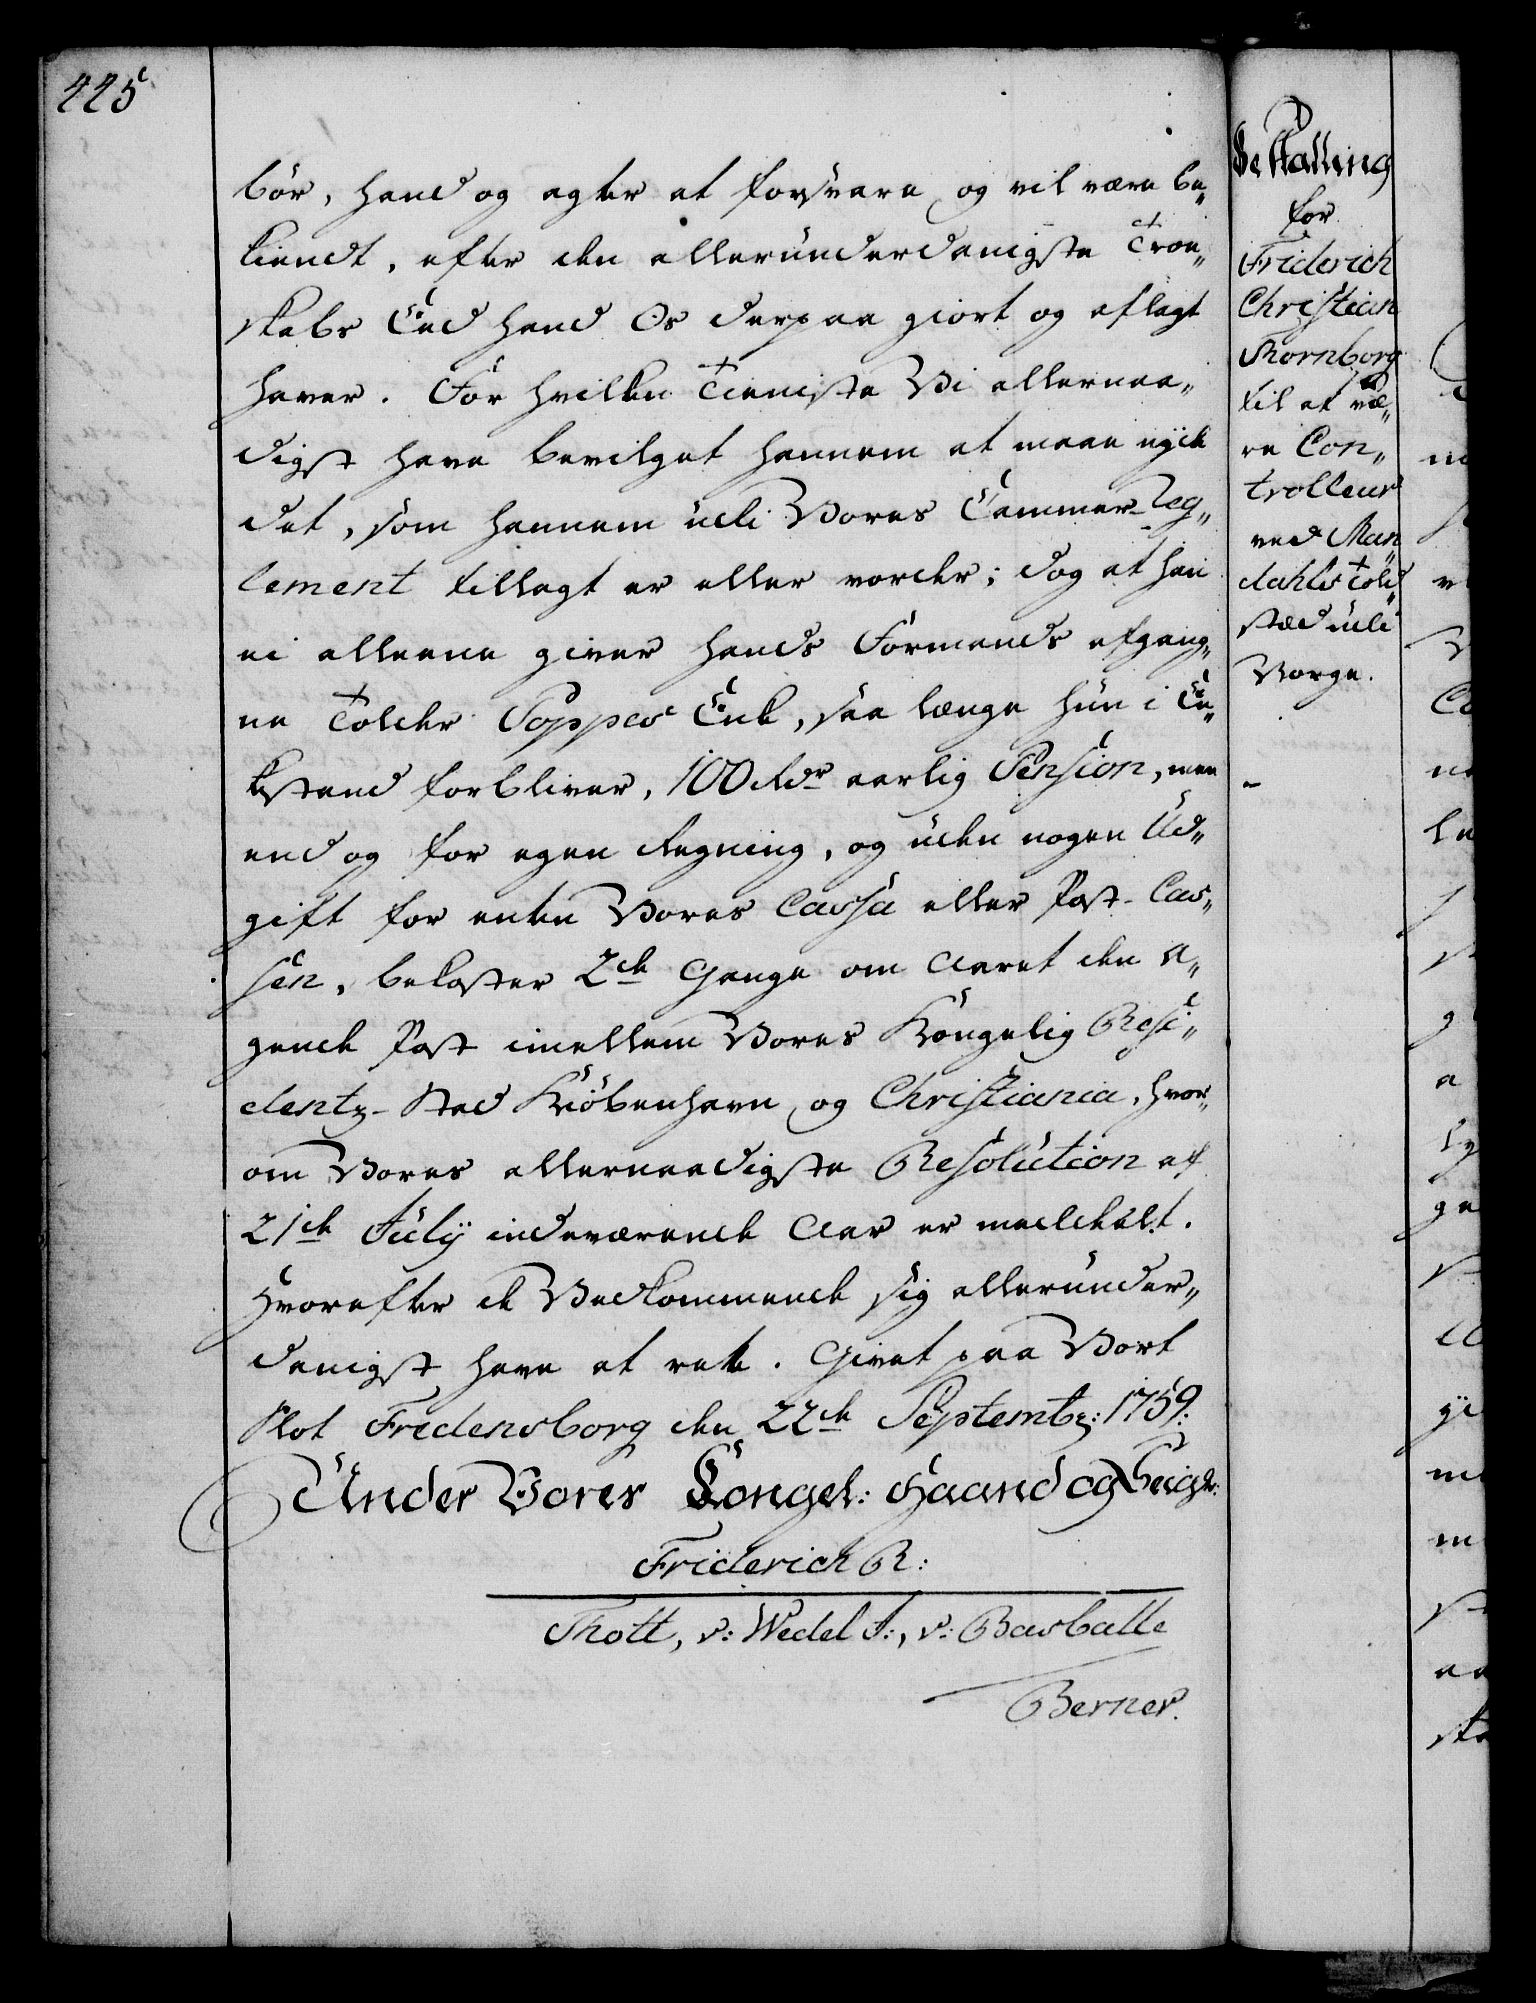 445
bör, hand og agter at forsvare og vil være be„
kiendt, efter den allerunderdanigste Troe„
skabs Eed hand Os derpaa giort og aflagt
haver. For hvilken Tieniste Vi allernaa„
digst have bevilget hannem at maae nyde
det, som hannem udi Vores Cammer-Reg„
lement tillagt er eller vorder; dog at han
ei alleene giver hands Formands afgang„
ne Tolder Poppes Enke, saa længe hun i En„
kestand forbliver, 100 rdr aarlig Pension, men
end og for egen Regning, og uden nogen Ud„
gift for enten Vores Cassa eller Post-Cas„
sen, bekoster 2de Gange om Aaret den a„
gende Post imellem Vores Kongelig Resi„
dentz-Stad Kiöbenhavn og Christiania, hvor„
om Vores allernaadigste Resolution af
21de July indeværende Aar er meddeelt.
Hvorefter de Vedkommende sig allerunder„
danigst have at rette. Givet paa Vort
Slot Fridensborg den 22de Septembr: 1759:
Under Vores Kongel: Haand og Seigl:
Friderich R:
Thott, v: Wedel F:, v: Barballe
Berner.
Bestalling
for
Friderich
Christian
Thornborg
til at væ„
re Con„
trolleur
ved Man„
dahls Told„
stæd udi
Norge.